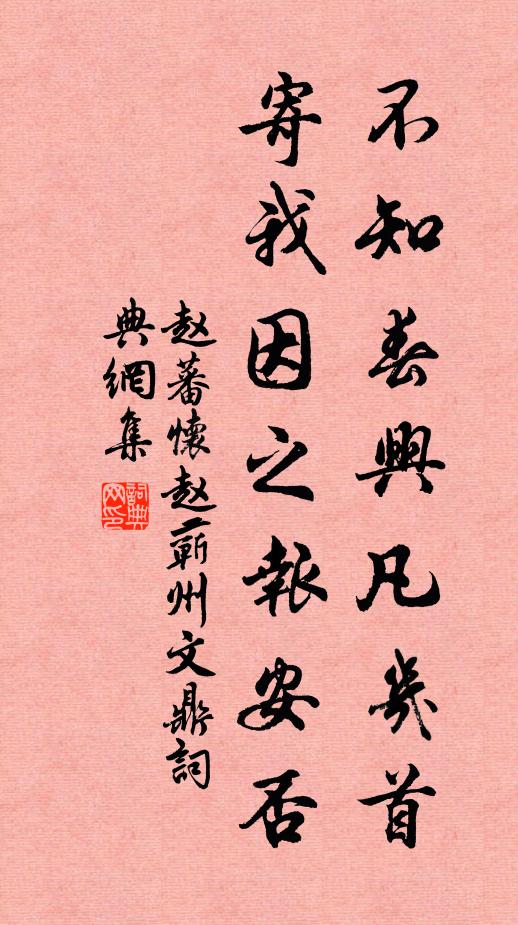 不知春興凡幾首
寄我因之報安否
赵蕃懷赵蘄州文鼎詞
典網集
詞典网印